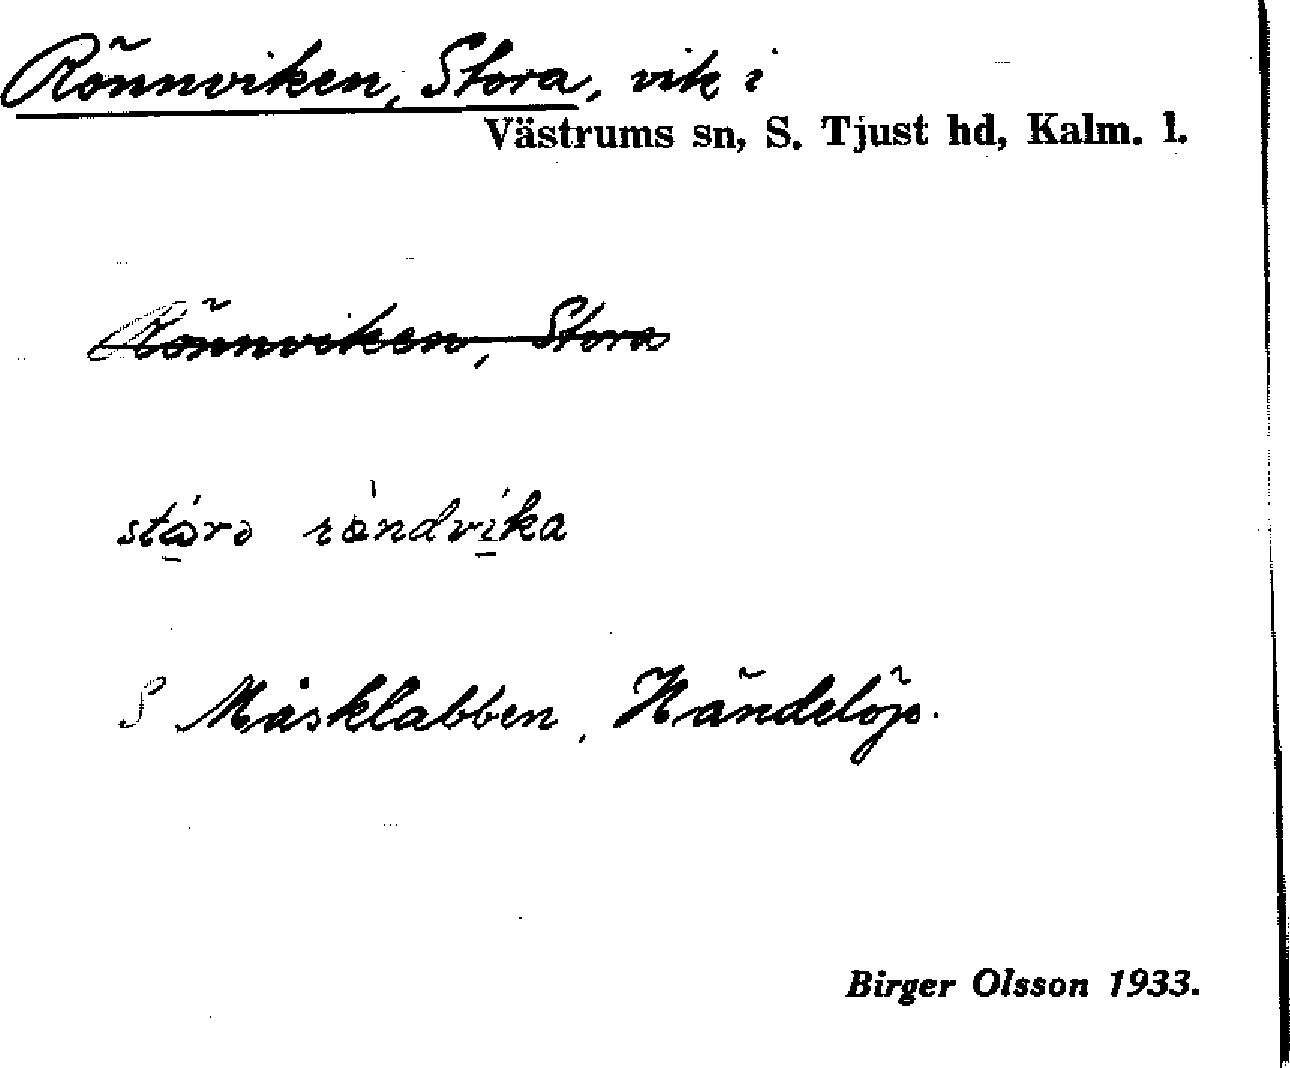 Rönnviken, Stora, vik i
Västrums sn, S. Tjust hd, Kalm. l.
Rönnviken, Stora
S Måsklabben, Händelöp.
Birger Olsson 1933.